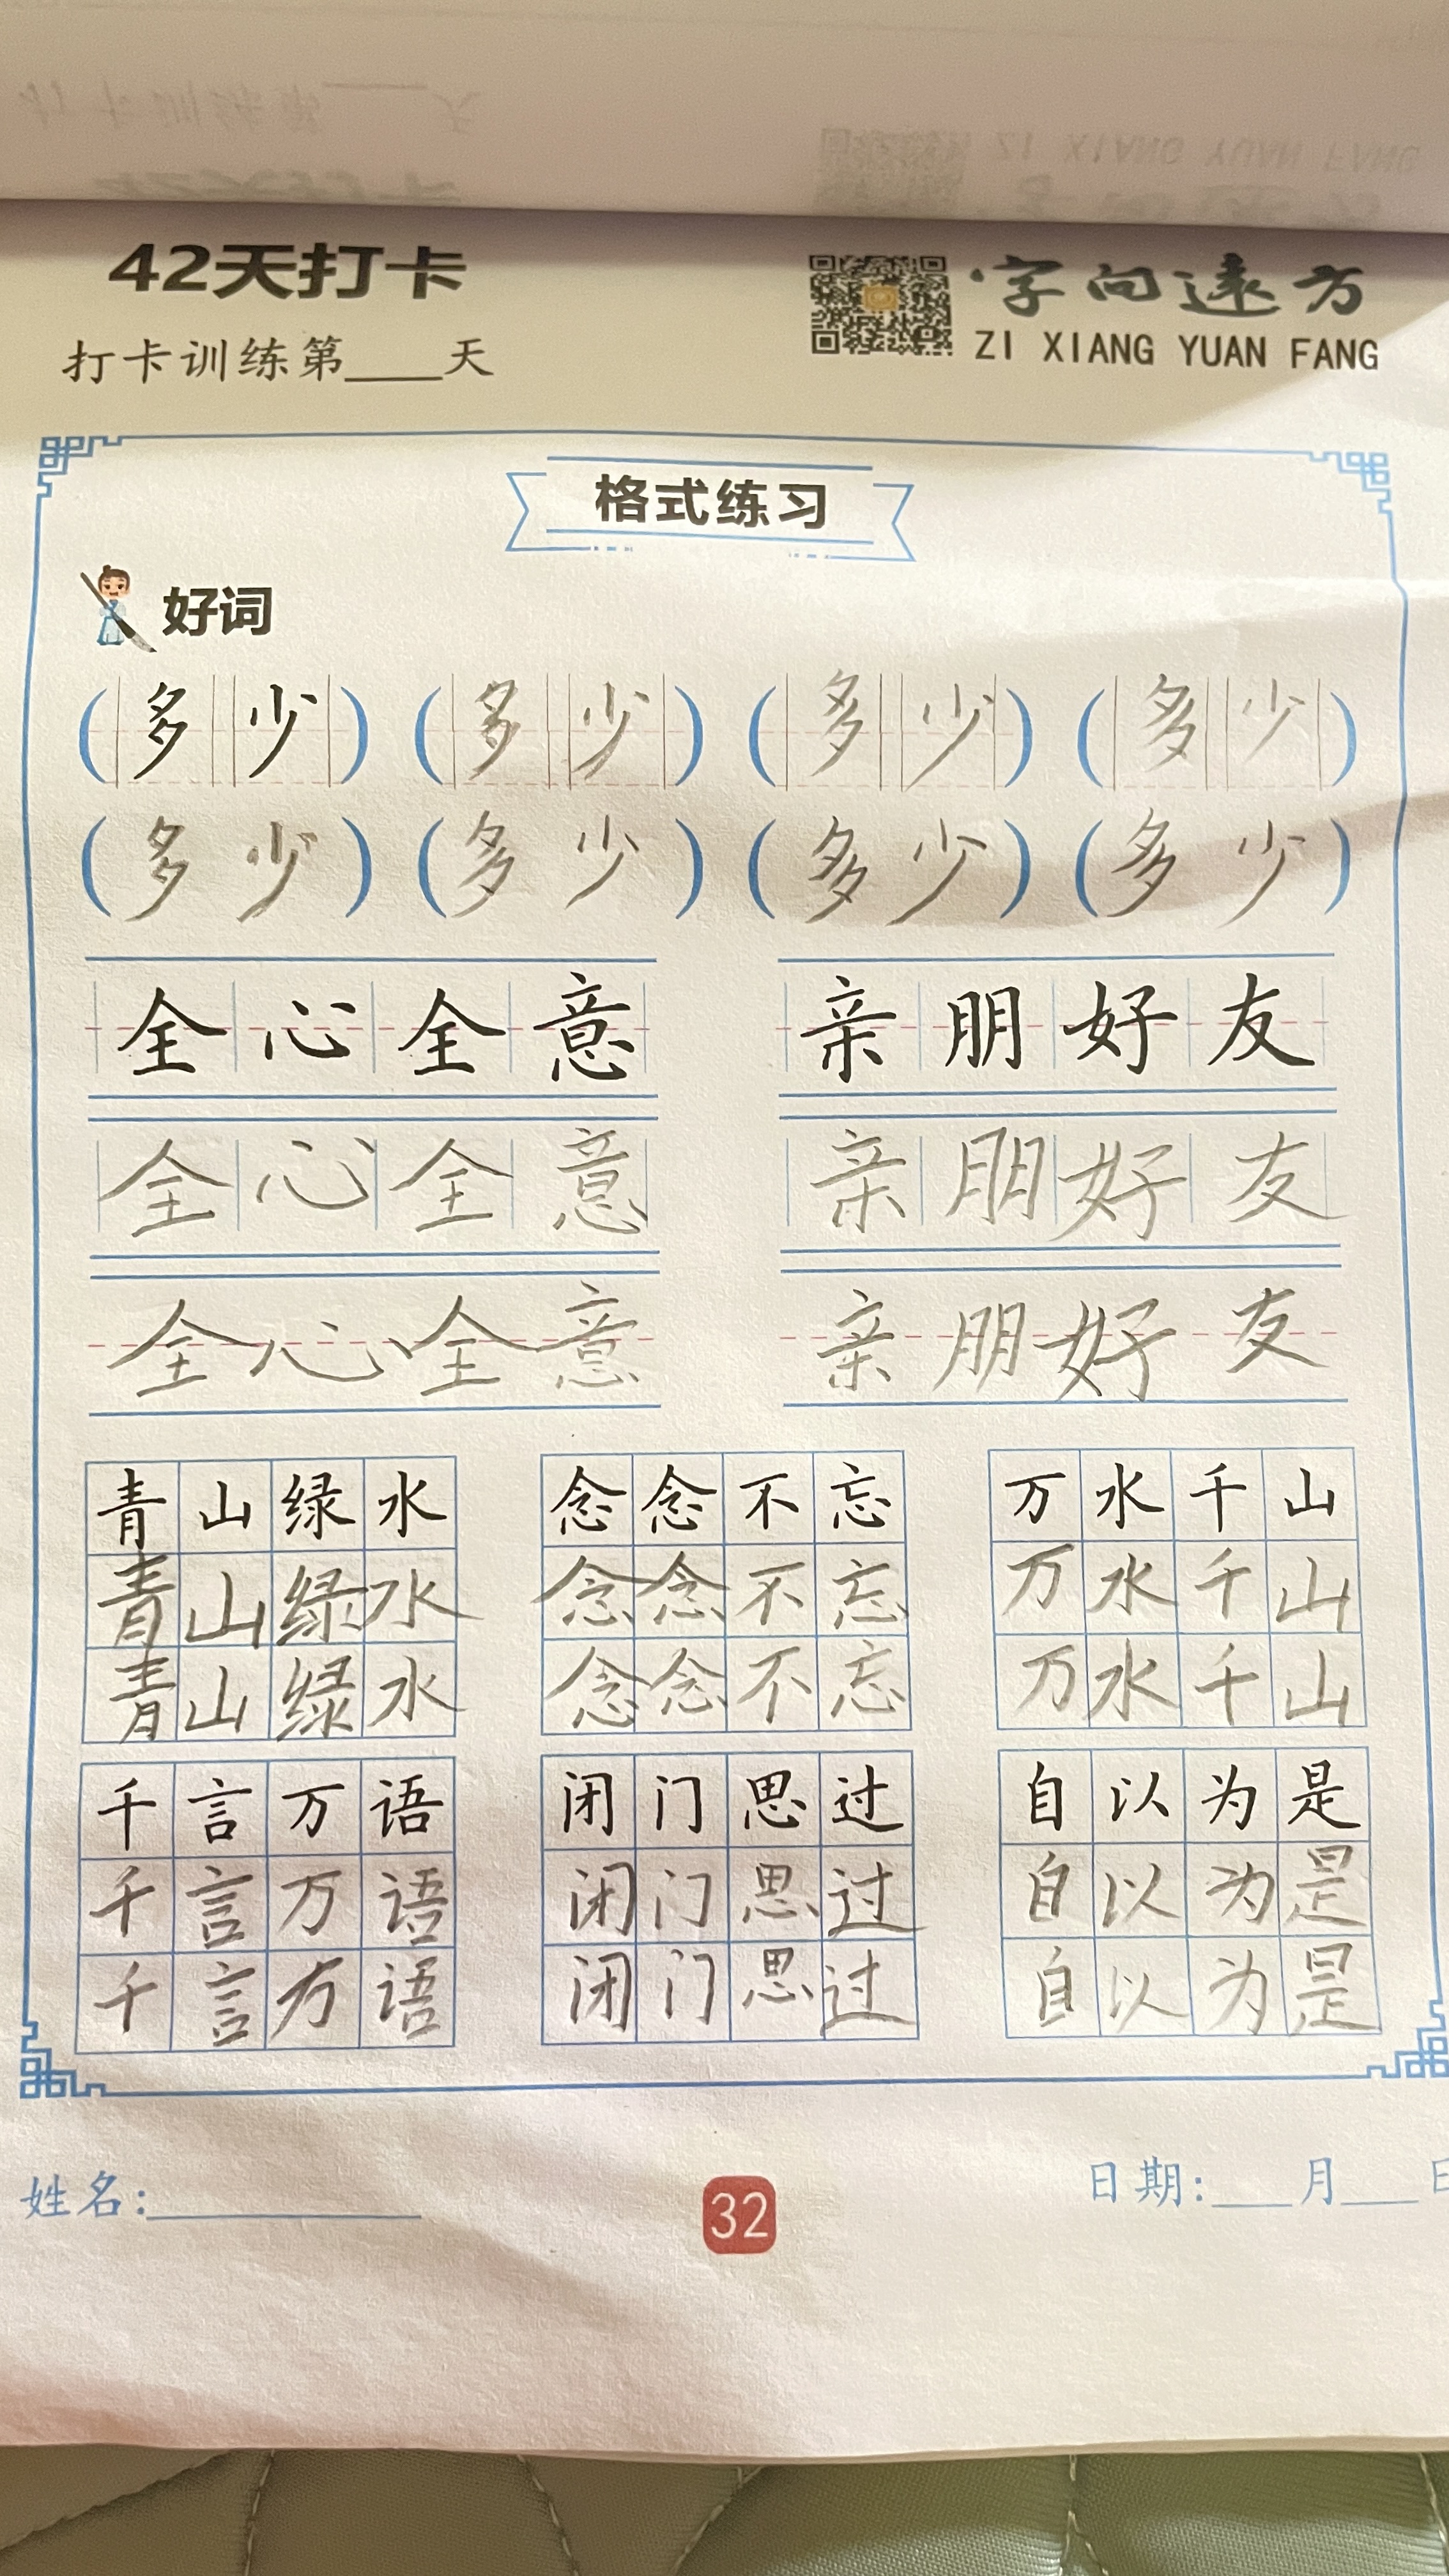 42天打卡
字向远方
打卡训练第____天
ZI XIANG YUAN FANG
格式练习
好词
(多少) (多少) (多少) (多少)
(多少) (多少) (多少) (多少)
全心全意 亲朋好友
全心全意 亲朋好友
全心全意 亲朋好友
青山绿水 念念不忘 万水千山
青山绿水 念念不忘 万水千山
青山绿水 念念不忘 万水千山
千言万语 闭门思过 自以为是
千言万语 闭门思过 自以为是
千言万语 闭门思过 自以为是
姓名:________ 32 日期:___月___日